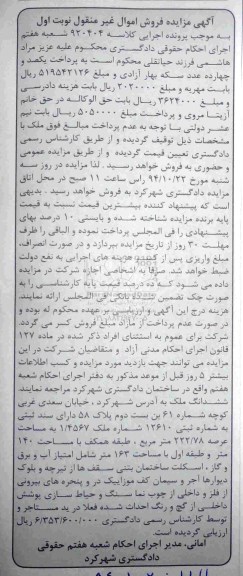 آگهی مزایده فروش اموال غیر منقول نوبت اول
به موجب پرونده اجرایی کلاسه ۹۲۰۴۰۴ شعبه هفتم
اجرای احکام حقوقی دادگستری محکوم علیه عزیز مراد
هاشمی فرزند حیاتقلی محکوم است به پرداخت یکصد و
چهارده عدد سکه بهار آزادی و مبلغ ۵۱۹۵۴۲۱۲۶ ریال
بابت مهریه و مبلغ ۲۰۲۰۰۰۰ ریال بابت هزینه دادرسی
و مبلغ ۳۶۲۴۰۰۰ ریال بابت حق الوکاله در حق خانم
آزیتا مروی و پرداخت ۵۰۵۰۰۰۰ ریال بابت نیم
عشر دولتی با توجه به عدم پرداخت مبالغ فوق ملک با
مشخصات ذیل توقیف گردیده و از طریق کارشناس رسمی
دادگستری تعیین قیمت گردیده و از طریق مزایده عمومی
و حضوری به فروش خواهد رسید. لذا مزایده در روز سه
شنبه مورخ ۹۴/۱۰/۲۲ راس ساعت ۱۱ صبح در محل اتاق
مزایده دادگستری شهرکرد به فروش خواهد رسید. بدیهی
است که پیشنهاد کننده بیشترین قیمت نسبت به قیمت
پایه برنده مزایده شناخته شده و بایستی ۱۰ درصد بهای
پیشنهادی را فی المجلس پرداخت نموده و الباقی را ظرف
مهلت ۳۰ روز از تاریخ مزایده بپردازد و در صورت انصراف،
مبلغ واریزی پس از کسر هزینه های اجرایی به نفع دولت
ضبط خواهد شد. صرفا به اشخاصی اجازه شرکت در مزایده
داده می شود که ده درصد قیمت پایه کارشناسی را به
صورت چک تضمین شده بانکی فی المجلس ارائه نمایند.
هزینه درج این آگهی و ارزیابی بر عهده محکوم له بوده و
در صورت عدم پرداخت از مازاد مبلغ فروش کسر می گردد.
شرکت برای عموم به استثنای افراد ذکر شده در ماده ۱۲۷
قانون اجرای احکام مدنی آزاد و متقاضیان شرکت در این
مزایده می توانند جهت بازدید مورد مزایده و کسب اطلاعات
بیشتر ۵ روز قبل از موعد مذکور به دفتر اجرای احکام شعبه
هفتم واقع در ساختمان دادگستری شهرکرد مراجعه نمایند.
ششدانگ ملک به آدرس شهرکرد، خیابان سعدی غربی
کوچه شماره ۶۱ بن بست دوم پلاک ۵۸ دارای سند ثبتی
به شماره ثبتی ۱۲۶۱۰ شماره ملک ۱/۴۵۶۷ به مساحت
عرصه ۲۲۲/۷۸ متر مربع، طبقه همکف با مساحت ۱۴۰
متر و طبقه اول با مساحت ۱۶۳ متر شامل امتیاز آب و برق
و گاز، اسکلت ساختمان بتنی سقف ها از تیرچه و بلوک
دیوارها آجر و سیمان کف موزاییک در و پنجره های بیرونی
از فلز و داخلی از چوب نما سنگ و حیاط سازی پوشش
داخلی از گچ و رنگ احداث شده فعلا در ید مستاجر و
توسط کارشناس رسمی دادگستری ۶/۳۵۳/۶۰۰/۰۰۰ ریال
ارزیابی گردیده است.
امانی، مدیر اجرای احکام شعبه هفتم حقوقی
دادگستری شهرکرد